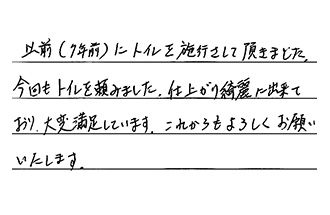 以前(7年前)にトイレを施行さして頂きました。
今回もトイレを頼みました。仕上がり綺麗に出来て
おり、大変満足しています。これからもよろしくお願い
いたします。